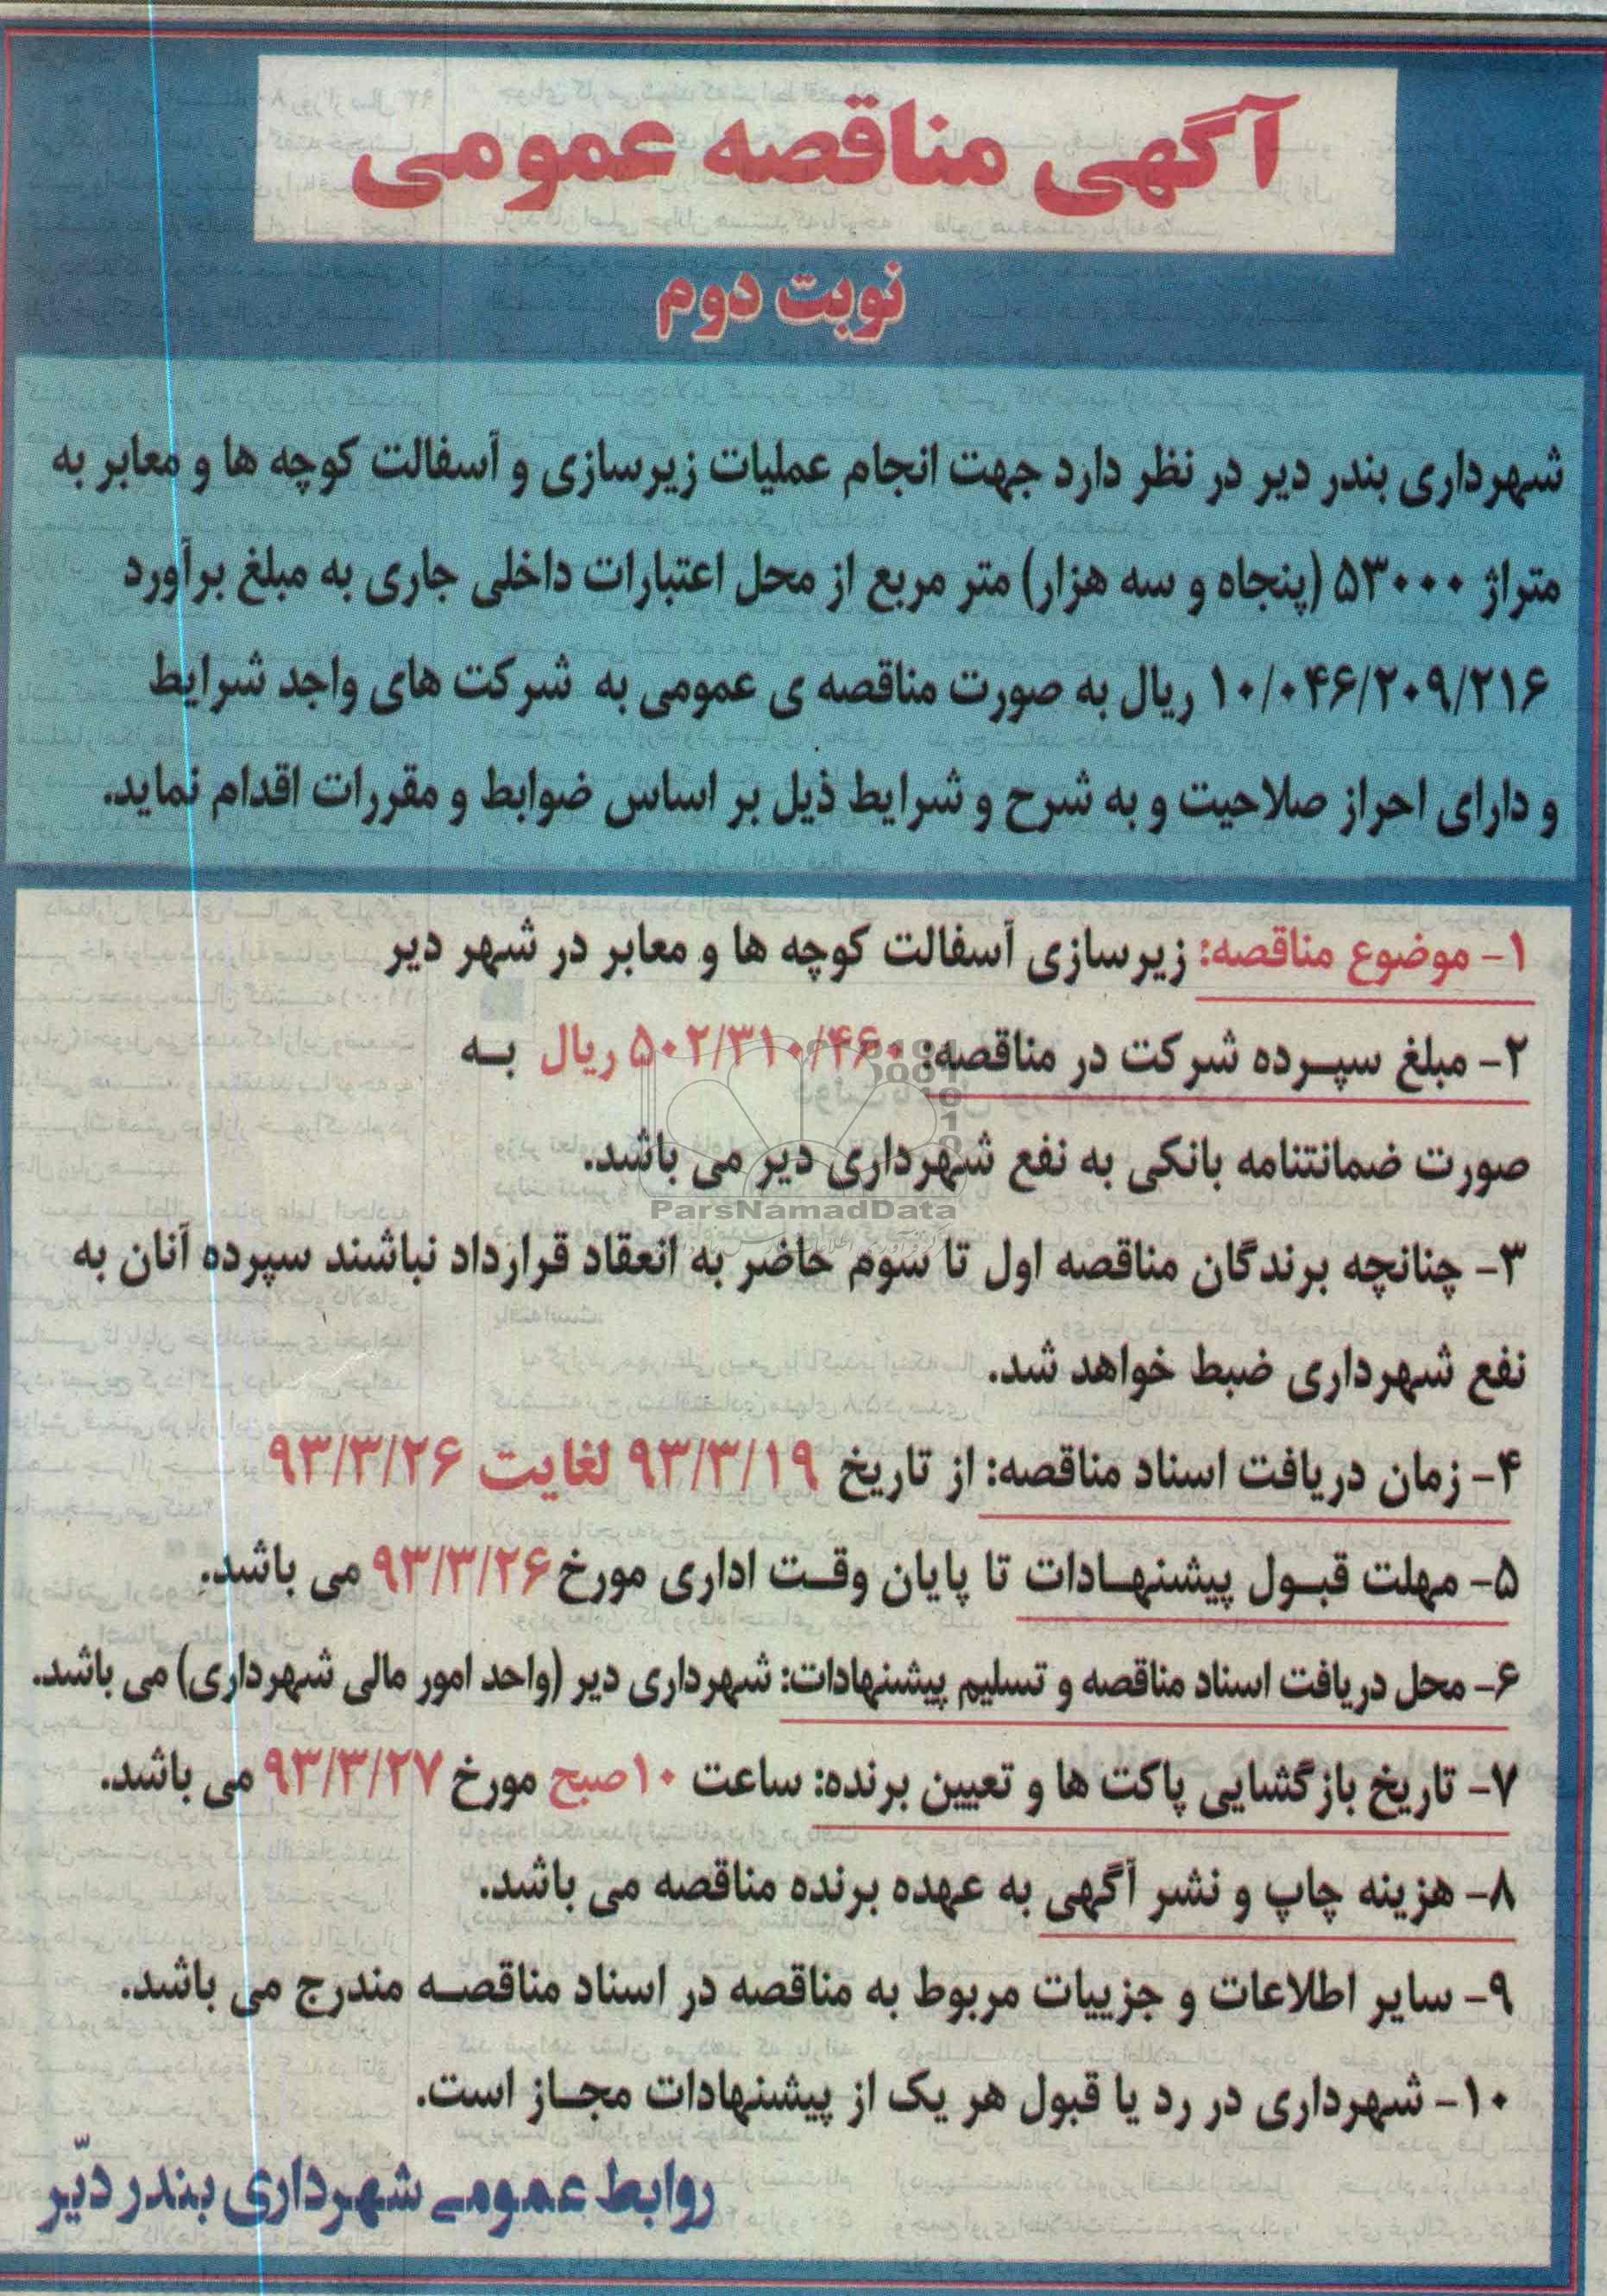 آگهی مناقصه عمومی
نوبت دوم
شهرداری بندر دیر در نظر دارد جهت انجام عملیات زیرسازی و آسفالت کوچه ها و معابر به
متراژ ۵۳۰۰۰ (پنجاه و سه هزار) متر مربع از محل اعتبارات داخلی جاری به مبلغ برآورد
۱۰/۰۴۶/۲۰۹/۲۱۶ ریال به صورت مناقصه ی عمومی به شرکت های واجد شرایط
و دارای احراز صلاحیت و به شرح و شرایط ذیل بر اساس ضوابط و مقررات اقدام نماید.
۱- موضوع مناقصه: زیرسازی آسفالت کوچه ها و معابر در شهر دیر
۲- مبلغ سپرده شرکت در مناقصه: ۵۰۲/۳۱۰/۴۶۰ ریال به
صورت ضمانتنامه بانکی به نفع شهرداری دیر می باشد.
ParsNamadData
۳- چنانچه برندگان مناقصه اول تا سوم حاضر به انعقاد قرارداد نباشند سپرده آنان به
نفع شهرداری ضبط خواهد شد.
۴- زمان دریافت اسناد مناقصه: از تاریخ ۹۳/۳/۱۹ لغایت ۹۳/۳/۲۶
۵- مهلت قبول پیشنهادات تا پایان وقت اداری مورخ ۹۳/۳/۲۶ می باشد.
۶- محل دریافت اسناد مناقصه و تسلیم پیشنهادات: شهرداری دیر (واحد امور مالی شهرداری) می باشد.
۷- تاریخ بازگشایی پاکت ها و تعیین برنده: ساعت ۱۰صبح مورخ ۹۳/۳/۲۷ می باشد.
۸- هزینه چاپ و نشر آگهی به عهده برنده مناقصه می باشد.
۹- سایر اطلاعات و جزییات مربوط به مناقصه در اسناد مناقصه مندرج می باشد.
۱۰- شهرداری در رد یا قبول هر یک از پیشنهادات مجاز است.
روابط عمومی شهرداری بندر دیّر